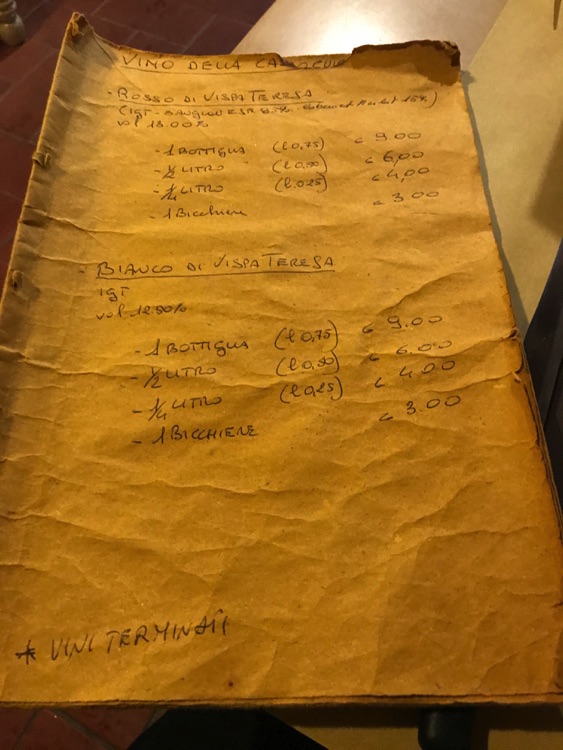 VINO DELLA
- ROSSO DI VISPA TERESA
(IGT - SANGIOVESE 85% - Cabernet Merlot 15%)
vol 13.00%
- 1 BOTTIGLIA (l 0,75) € 9.00
- 1/2 LITRO (l 0,50) € 6,00
- 1/4 LITRO (l 0,25) € 4,00
- 1 Bicchiere € 3.00
- BIANCO DI VISPA TERESA
igt
vol. 12.50%
- 1 BOTTIGLIA (l 0,75) € 9.00
- 1/2 LITRO (l 0,50) € 6.00
- 1/4 LITRO (l 0,25) € 4.00
- 1 BICCHIERE € 3.00
* VINI TERMINATI